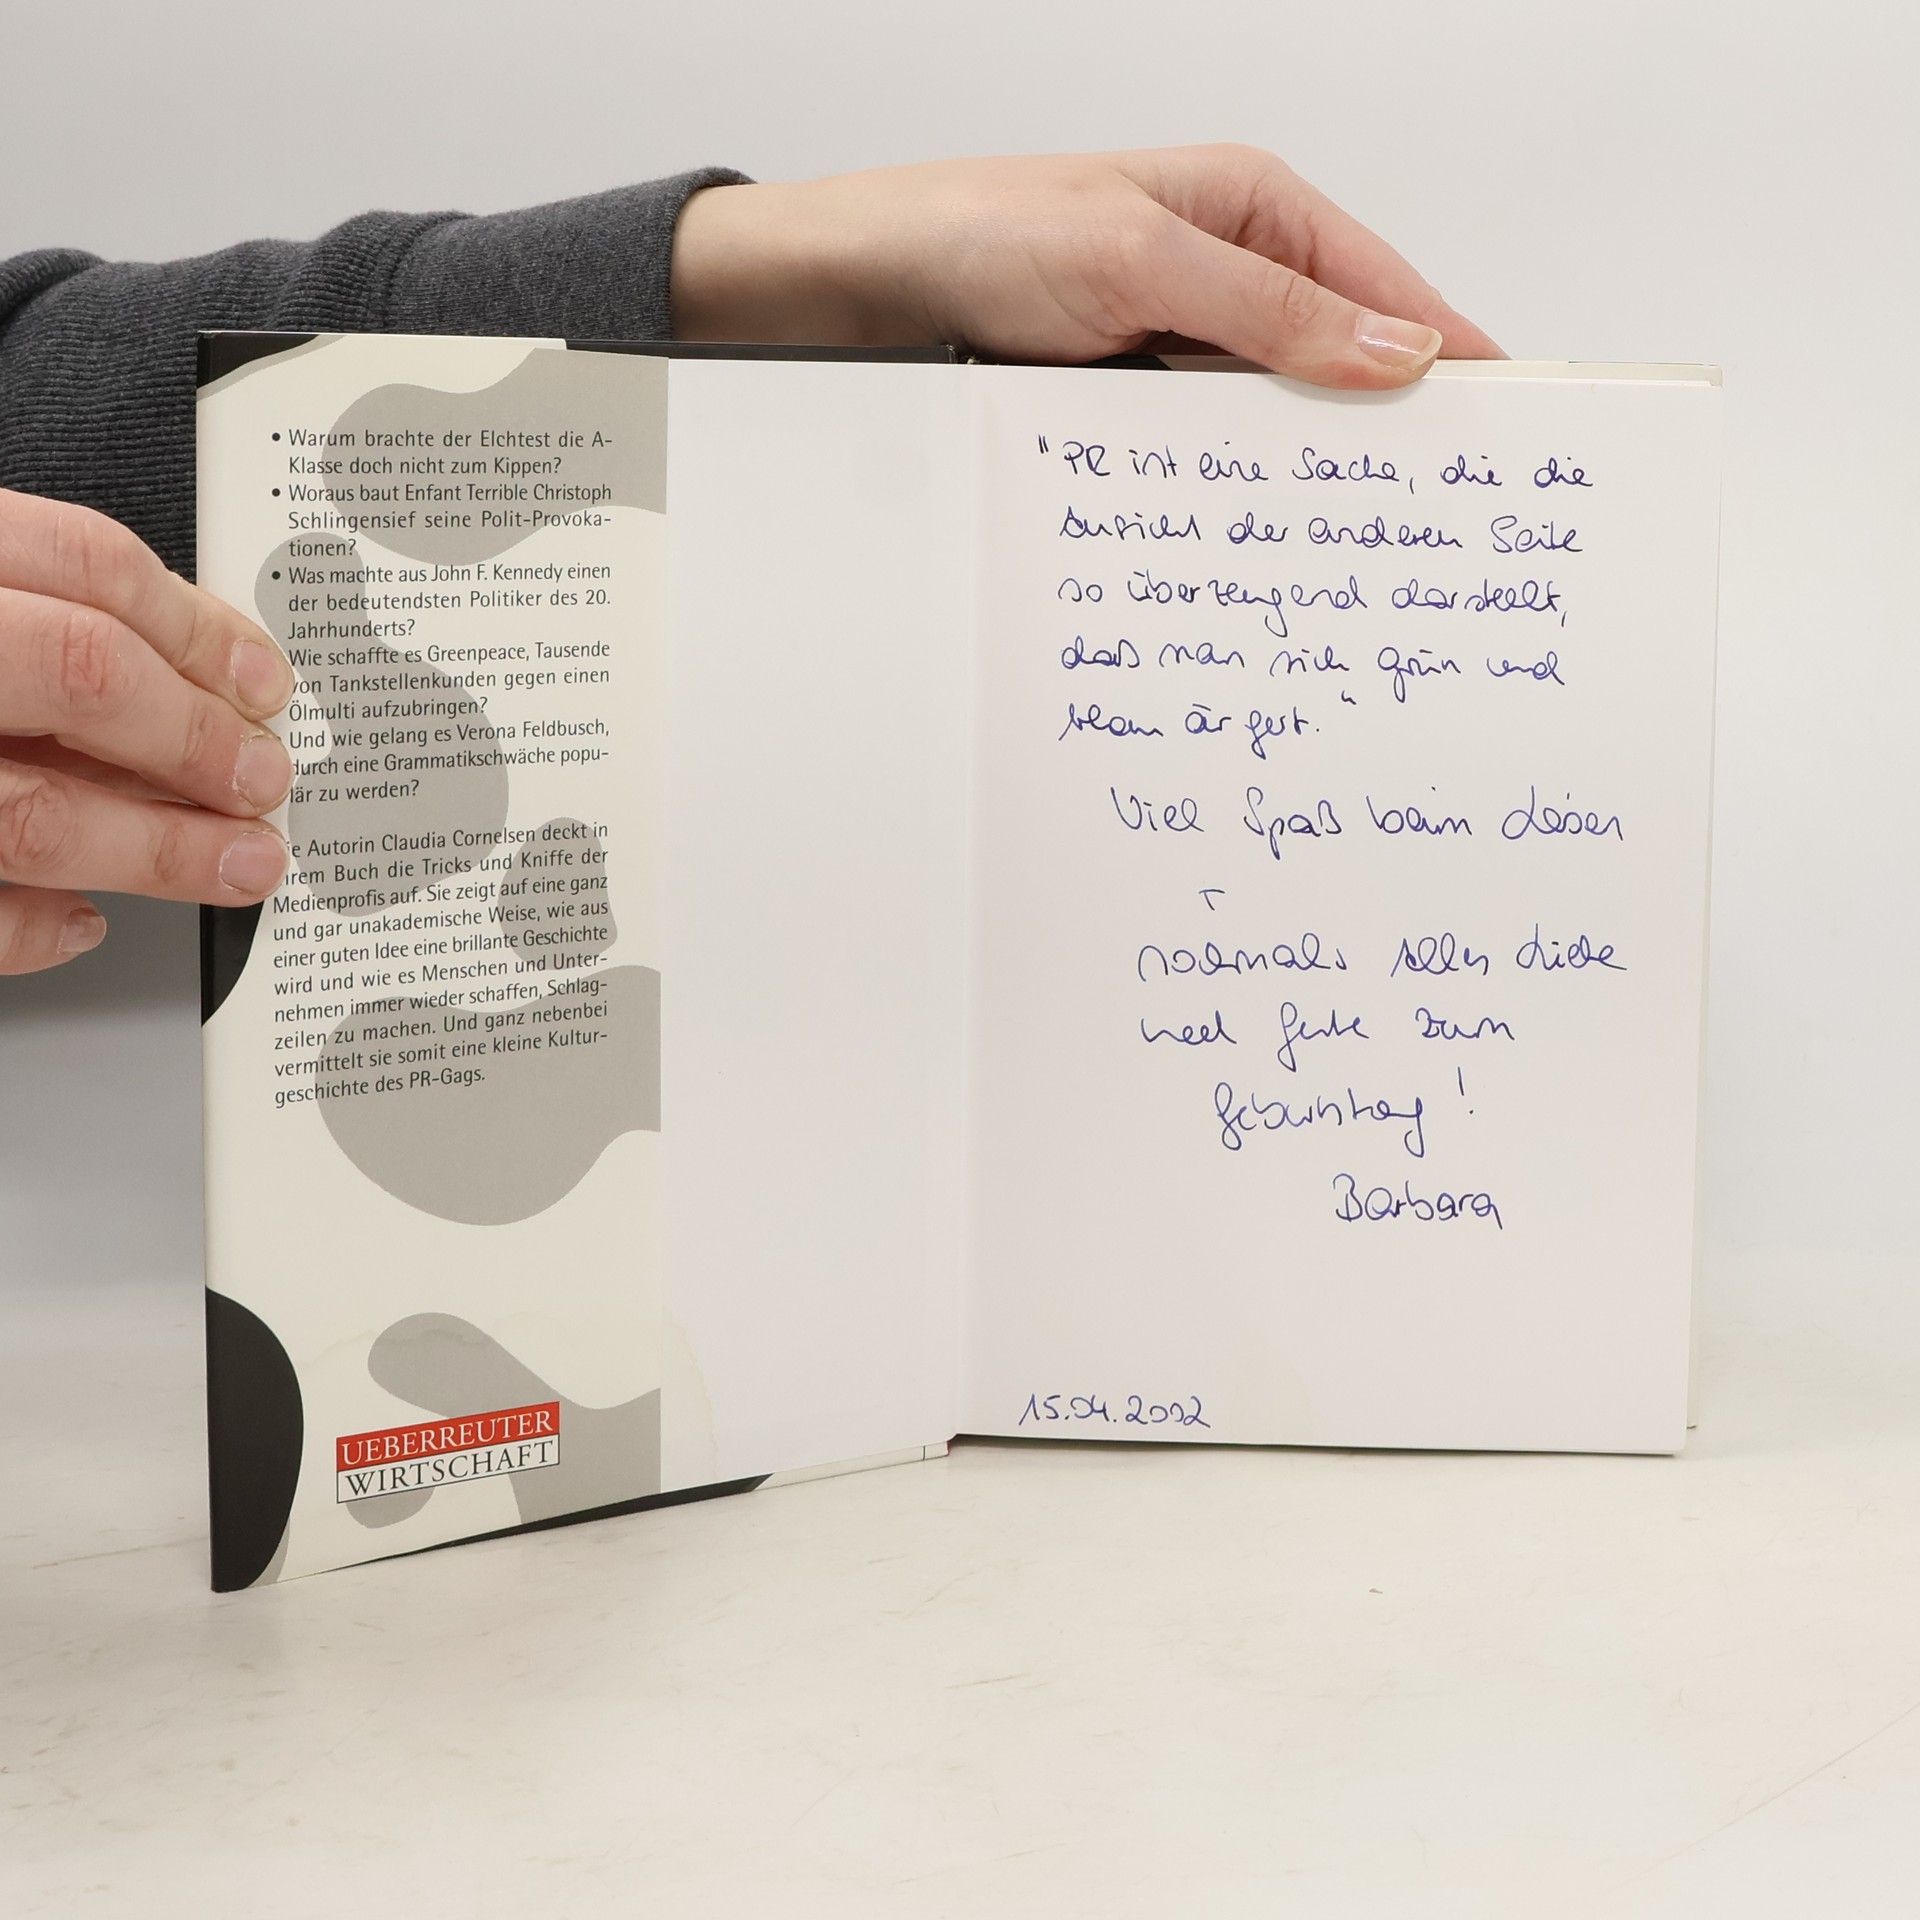 • Warum brachte der Elchtest die A-
Klasse doch nicht zum Kippen?
• Woraus baut Enfant Terrible Christoph
Schlingensief seine Polit-Provoka-
tionen?
• Was machte aus John F. Kennedy einen
der bedeutendsten Politiker des 20.
Jahrhunderts?
Wie schaffte es Greenpeace, Tausende
von Tankstellenkunden gegen einen
Ölmulti aufzubringen?
Und wie gelang es Verona Feldbusch,
durch eine Grammatikschwäche popu-
lär zu werden?
Autorin Claudia Cornelsen deckt in
Buch die Tricks und Kniffe der
Medienprofis auf. Sie zeigt auf eine ganz
und gar unakademische Weise, wie aus
einer guten Idee eine brillante Geschichte
wird und wie es Menschen und Unter-
nehmen immer wieder schaffen, Schlag-
zeilen zu machen. Und ganz nebenbei
vermittelt sie somit eine kleine Kultur-
geschichte des PR-Gags.
UEBERREUTER
WIRTSCHAFT
"PR ist eine Sache, die die
Ansicht der anderen Seite
so überzeugend darstellt,
daß man sich grün und
blau ärgert."
Viel Spaß beim Lesen
+
nochmals alles Liebe
und Gute zum
Geburtstag!
Barbara
15.04.2002